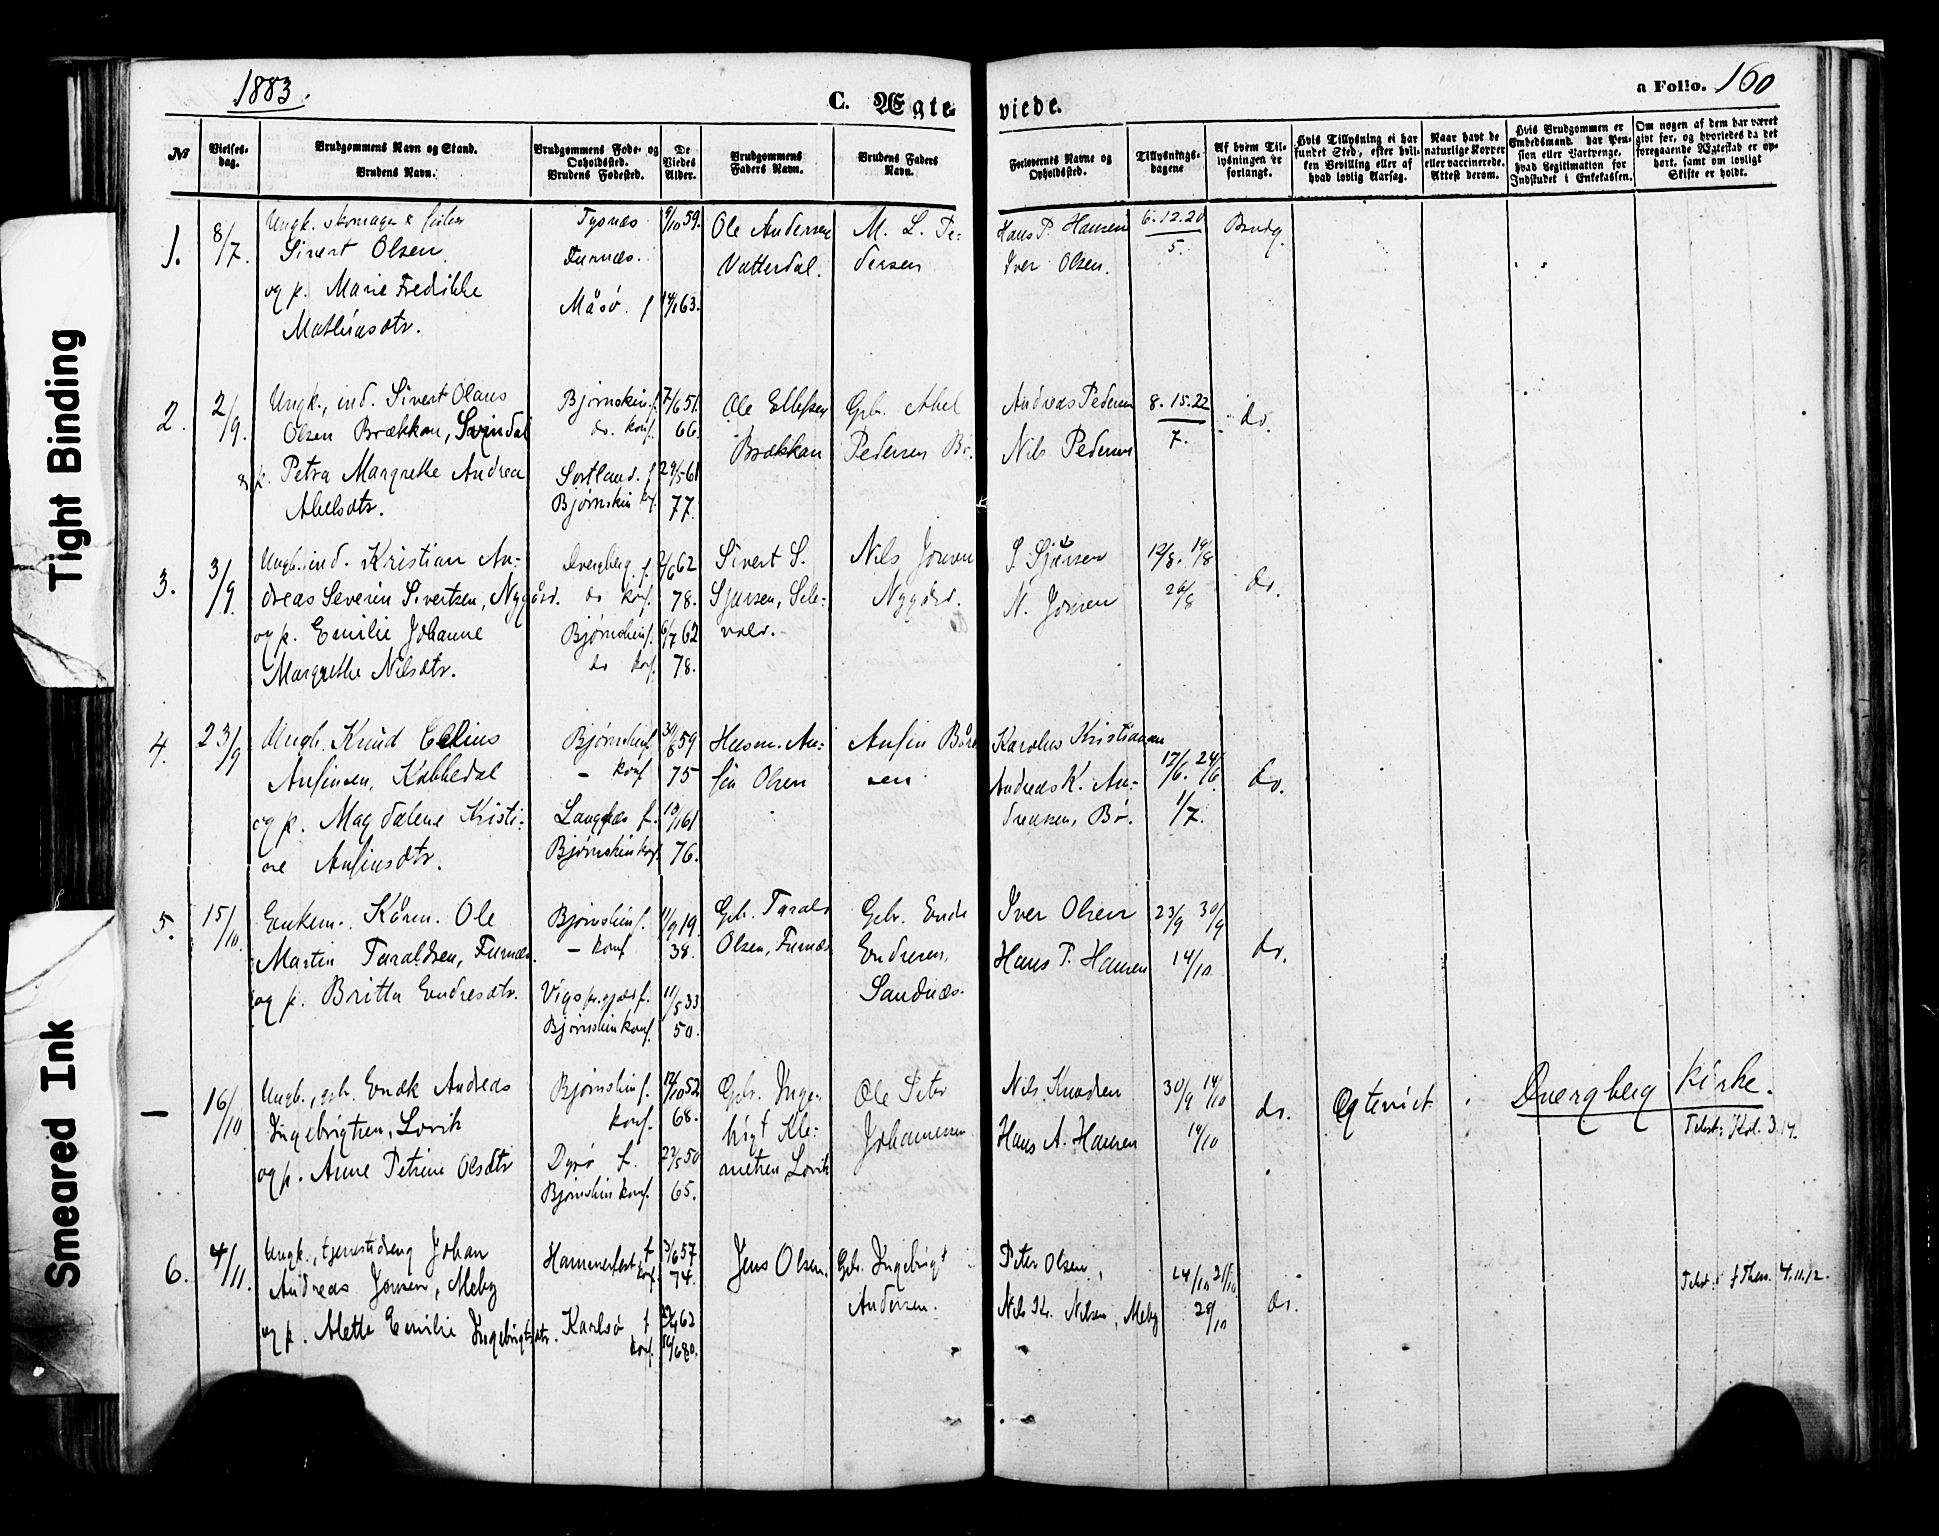 1883.
C. Ægte
viede.
a Folio. 160
№
Vielses-
dag.
Brudgommens Navn og Stand.
Brudens Navn.
Brudgommens Føde- og
Opholdssted.
Brudens Fødested.
De
Viedes
Alder.
Brudgommens
Faders Navn.
Brudens Faders
Navn.
Forlovernes Navne og
Opholdssted.
Tillysnings-
dagene
Af hvem Til-
lysningen er
forlangt.
Hvis Tillysning ei har
fundet Sted, efter hvil-
ken Bevilling eller af
hvad lovlig Aarsag.
Naar havt de
naturlige Kopper
eller vaccinerede.
Attest derom.
Hvis Brudgommen er
Embedsmand, har Pen-
sion eller Vartpenge,
hvad Legitimation for
Indskudet i Enkekassen.
Om nogen af dem har været
gift før, og hvorledes da det
foregaaende Ægteskab er op-
hørt, samt om lovligt
Skifte er holdt.
1.
8/7.
Ungk. skomager &
Sivert Olsen
og p. Marie Fredikke
Mathiasdtr.
Tysnæs
Furnæs.
Måsø. f
9/10 59.
14/1 63.
Ole Andersen
Vatterdal.
M. L. Pe-
dersen
Hans P. Hansen
Iver Olsen.
6. 12. 20
5.
Brudg.
2.
2/9.
Ungk., ind. Sivert Olaus
Olsen Brækkan, Svindal
& p. Petra Margrethe Andrea
Abelsdtr.
Bjørnskin f.
do. konf.
Sortland. f
Bjørnskin kof.
7/6 51.
66.
29/5 61
77.
Ole Ellefsen
Brækkan
Gbr. Abel
Pedersen Bø.
Andreas Pedersen
Nils Pedersen
8. 15. 22
7.
do.
3.
3/9.
Ungk. ind. Kristian An-
dreas Severin Sivertsen, Nygård.
og p. Emilie Johanne
Margrethe Nilsdtr.
Dverberg f.
do konf.
Bjørnskin f.
do konf.
2/6 62
78.
6/7 62
78.
Sivert S.
Sjursen, Sele-
vold.
Nils Jonsen
Nygård.
S. Sjursen
N. Jonsen
12/8. 19/8
26/8
do.
4.
23/9
Ungk. Knud Edius
Anfinsen, Kobbedal
og p. Magdalene Kristi-
ne Anfinsdtr.
Bjørnskin f.
– konf
Langnæs f.
Bjørnskin konf.
30/8 59
75
13/1 61
76.
Husm. An-
fin Olsen
Anfin Bård
sen
Karolus Kristiansen
Andreas K. An-
dreassen, Bø.
17/6. 24/6.
1/7.
do.
5.
15/10.
Enkem. Kåren. Ole
Martin Taraldsen, Furnæs.
og p. Britta Endresdtr.
Bjørnskin f.
– konf
Vigs pr.gjæld f.
Bjørnskin konf.
11/9 19.
38.
11/5 33
50.
Gbr. Tarald
Olsen, Furnæs
Gbr. Endre
Endresen,
Sandnæs.
Iver Olsen
Hans P. Hansen
23/9 30/9
14/10
do.
—
16/10
Ungk., gbr. Enok Andreas
Ingebrigtsen, Lovik
og p. Anne Petrine Olsdtr
Bjørnskin f.
konf.
Dyrø f.
Bjørnskin konf.
12/10 52
68.
22/5 50
65.
Gbr. Inge-
brigt Kle-
metsen Lovik
Ole Peter
Johannesen
Nils Knudsen
Hans A. Hansen
30/9 14/10
14/10
do.
Ægteviet i Dvergberg Kirke.
Tekst: Kol. 3.14.
6.
4/11.
Ungk., tjenestedreng Johan
Andreas Jensen, Meby
og p. Alette Emilie Ingebrigtsdtr.
Hammerfest f
konf.
Karlsø f
konf.
3/6 57
74.
22/4 62
14/6 80.
Jens Olsen.
Gbr. Ingebrigt
Andersen.
Peter Olsen,
Nils Kr. Nilsen, Meby
14/10 21/10
28/10
do.
Tekst: 1 Thess. 4.11.12.
Tight Binding
Smeared Ink